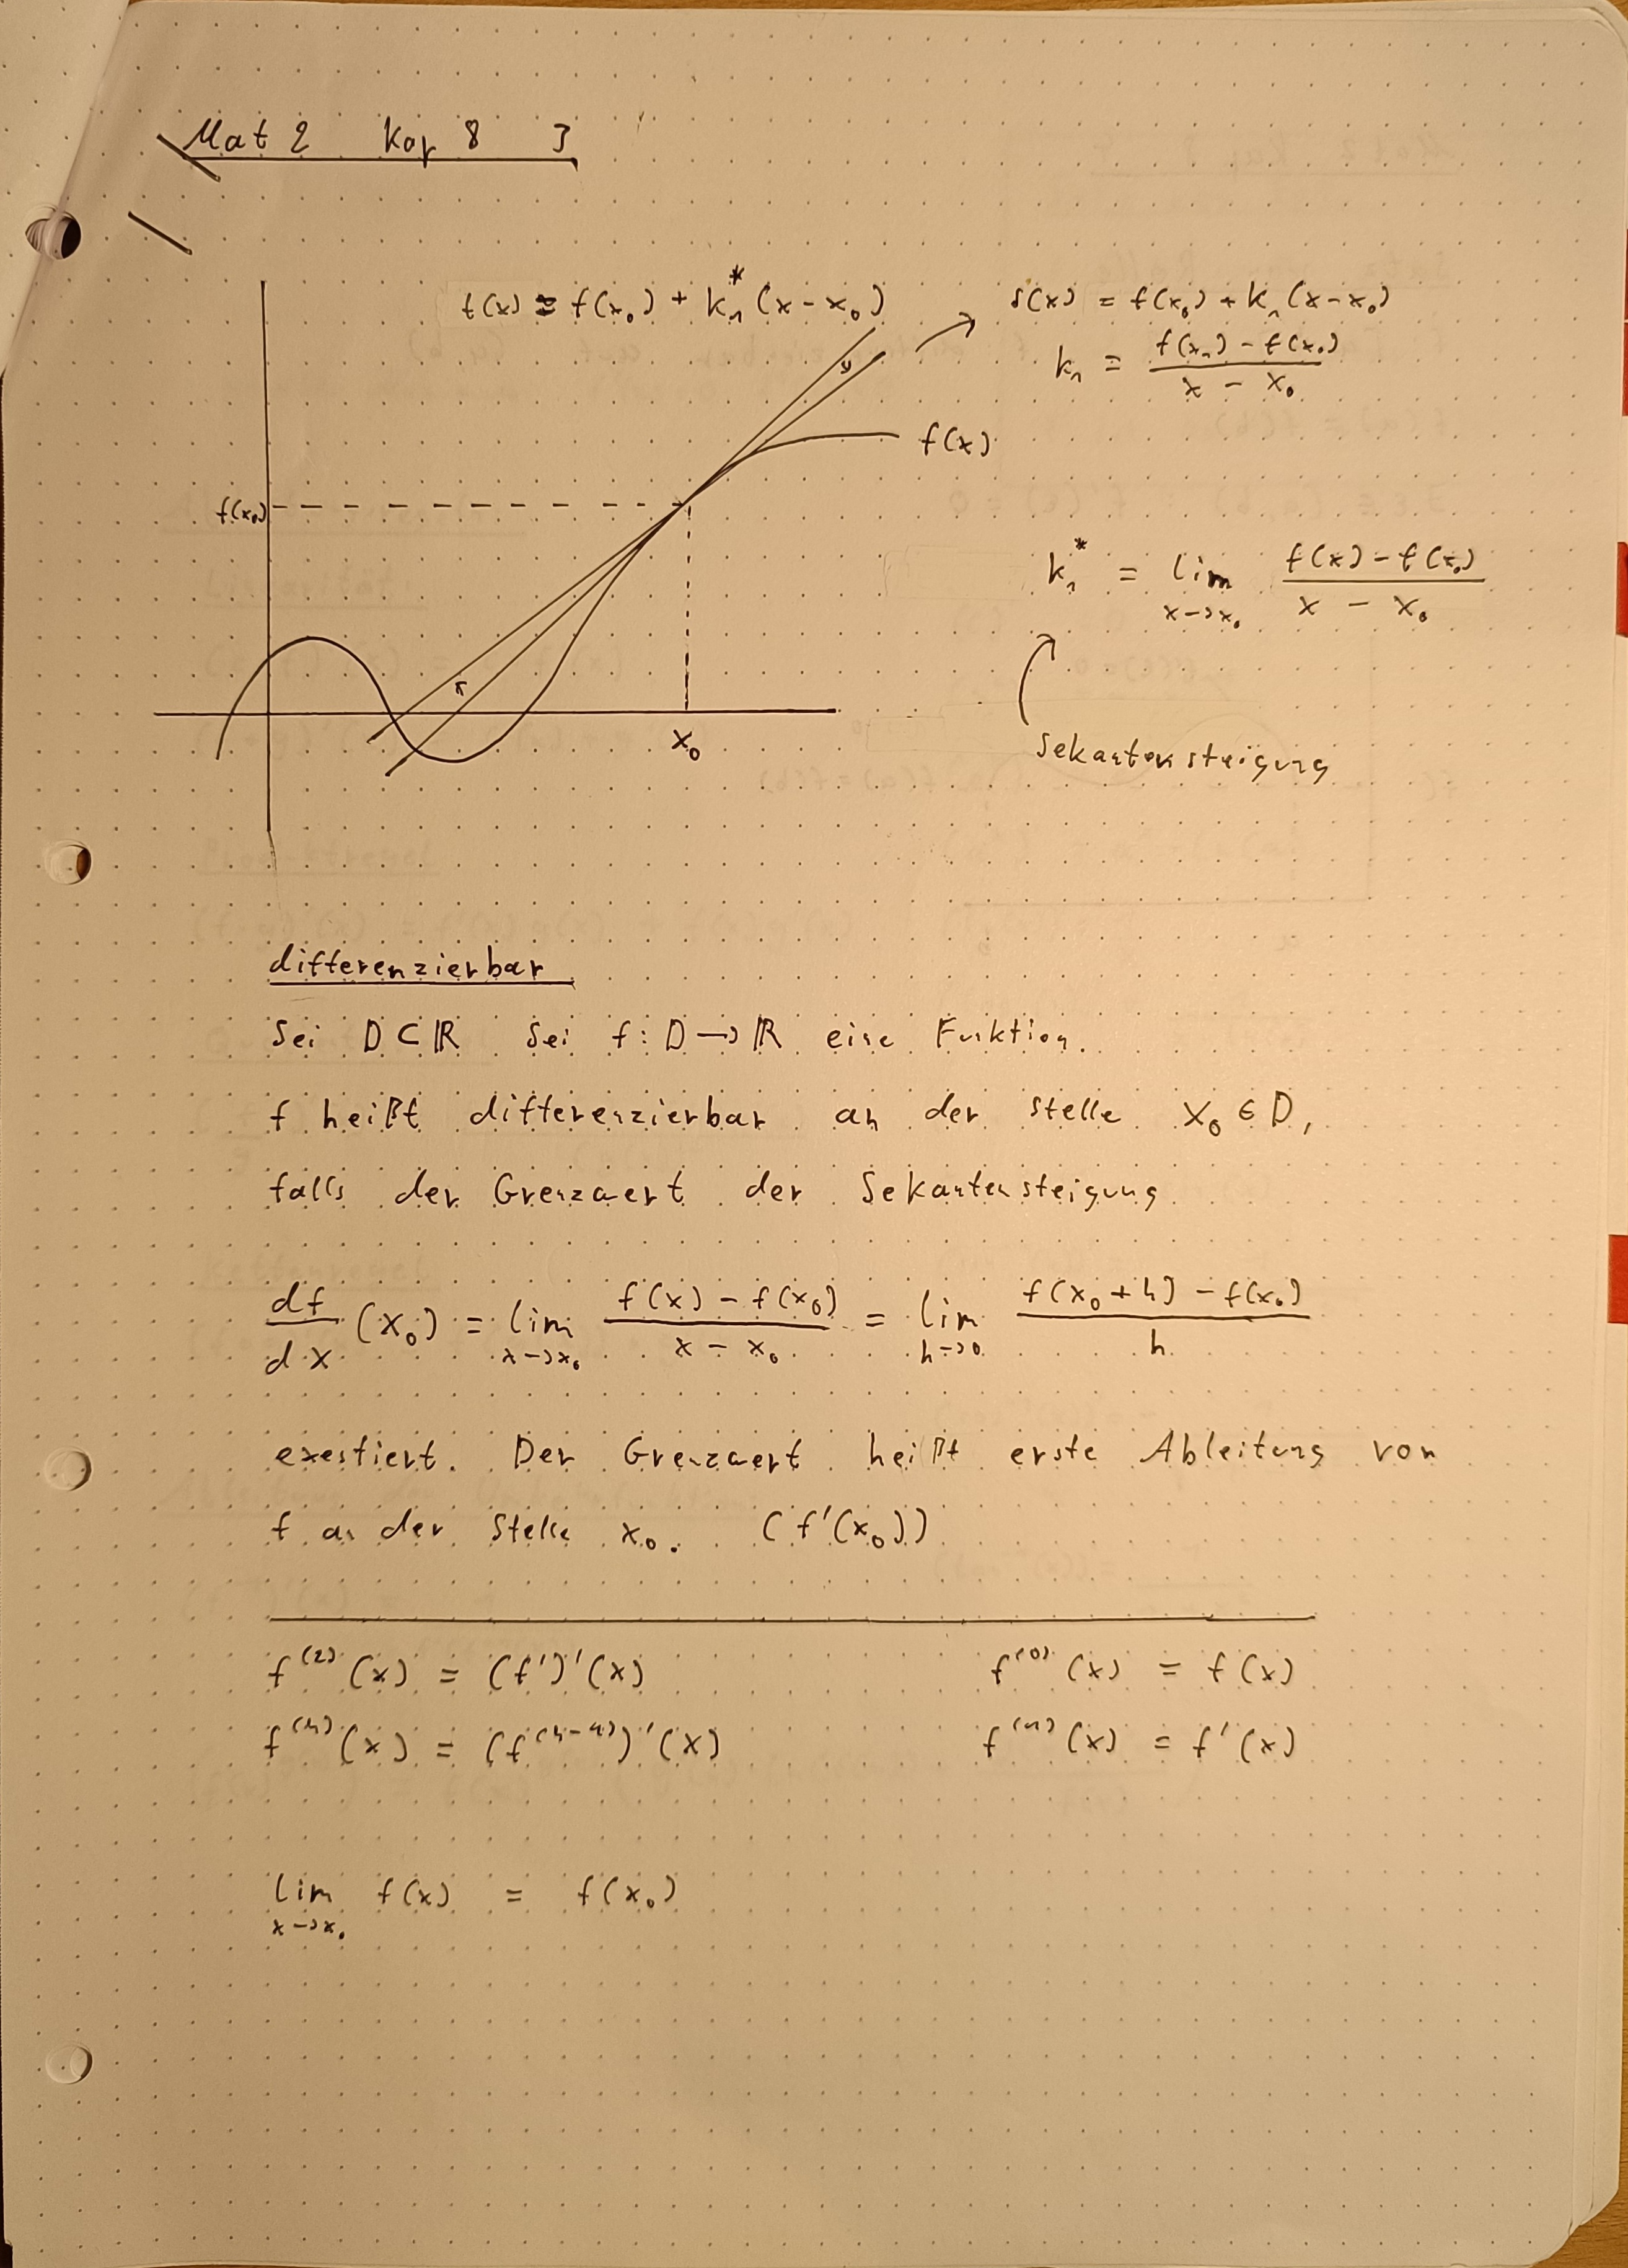 Mat 2 Kap 8 3
t(x) = f(x₀) + k₁* (x - x₀)
s(x) = f(x₀) + k₁ (x - x₀)
k₁ = (f(x₁) - f(x₀)) / (x - x₀)
f(x)
f(x₀)
k₁* = lim x->x₀ (f(x) - f(x₀)) / (x - x₀)
x₀
Sekantensteigung
differenzierbar
Sei D ⊂ ℝ Sei f: D → ℝ eine Funktion.
f heißt differenzierbar an der Stelle x₀ ∈ D,
falls der Grenzwert der Sekantensteigung
df/dx (x₀) = lim x->x₀ (f(x) - f(x₀)) / (x - x₀) = lim h->0 (f(x₀ + h) - f(x₀)) / h
exestiert. Der Grenzwert heißt erste Ableitung von
f an der Stelle x₀. (f'(x₀))
f⁽²⁾(x) = (f')'(x) f⁽⁰⁾(x) = f(x)
f⁽ⁿ⁾(x) = (f⁽ⁿ⁻¹⁾)'(x) f⁽¹⁾(x) = f'(x)
lim x->x₀ f(x) = f(x₀)